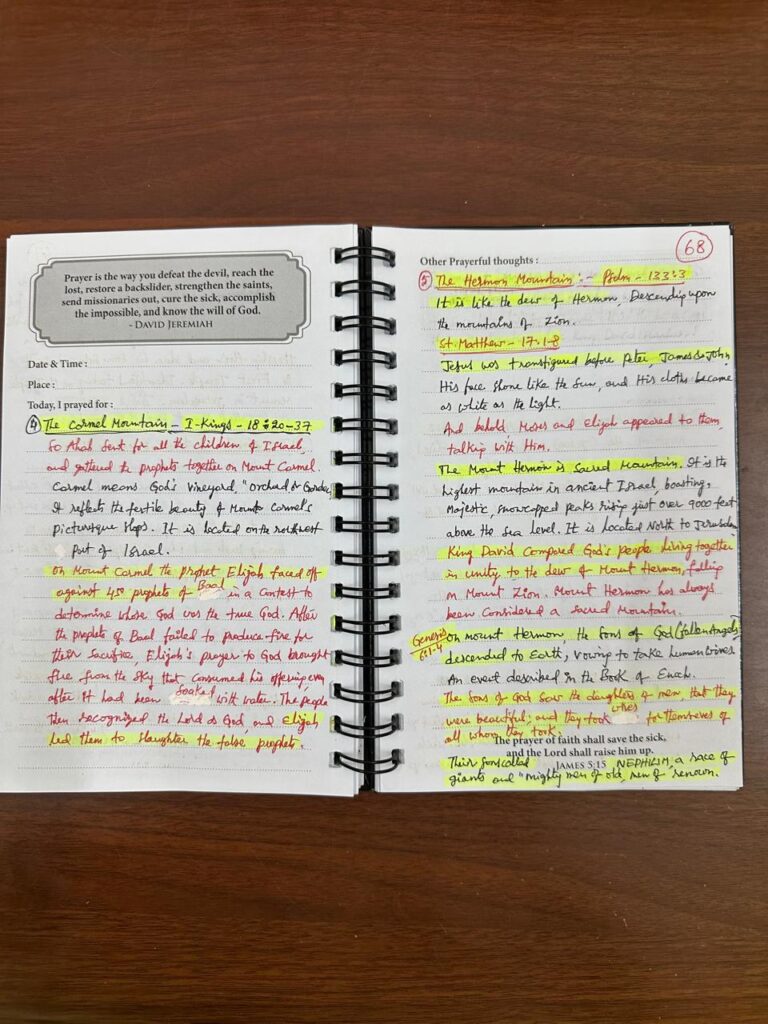 Prayer is the way you defeat the devil, reach the
lost, restore a backslider, strengthen the saints,
send missionaries out, cure the sick, accomplish
the impossible, and know the will of God.
- DAVID JEREMIAH
Date & Time :
Place :
Today, I prayed for :
4 The Carmel Mountain - I-Kings - 18:20-37
So Ahab sent for all the children of Israel,
and gathered the prophets together on Mount Carmel.
Carmel means God's vineyard, "orchard or Garden,
It reflects the fertile beauty of Mount Carmel's
picturesque slops. It is located on the northwest
Part of Israel.
On Mount Carmel the prophet Elijah faced off
against 450 prophets of Baal in a contest to
determine whose God was the true God. After
the prophets of Baal failed to produce fire for
their sacrifice, Elijah's prayer to God brought
fire from the sky that consumed his offering even
after It had been Soaked with water. The people
Then recognized the Lord as God, and Elijah
led them to slaughter the false prophets.
68
Other Prayerful thoughts :
5 The Hermon Mountain :- Psalm - 133:3
It is like the dew of Hermon, Descending upon
the mountains of Zion.
St. Matthew - 17:1-8
Jesus was transfigured before Peter, James & John
His face shone like the Sun, and His cloths became
as white as the light.
And behold Moses and Elijah appeared to them,
talking with Him.
The Mount Hermon is Sacred Mountain. It is the
highest mountain in ancient Israel, boasting
Majestic, snowcapped peaks rising just over 9000 feet
above the Sea Level. It is located North to Jerusalem
King David compared God's people living together
in unity to the dew of Mount Hermon, falling
on Mount Zion. Mount Hermon has always
been Considered a sacred Mountain.
Genesis 6:1-4
On mount Hermon, the Sons of God (fallen Angels)
descended to Earth, vowing to take human wives
An event described in the Book of Enoch.
The Sons of God saw the daughters of men, that they
were beautiful; and they took wives for themselves of
all whom they took.
The prayer of faith shall save the sick,
and the Lord shall raise him up.
JAMES 5:15
Their sons called NEPHILIM, a race of
giants and "mighty men of old, men of renown.